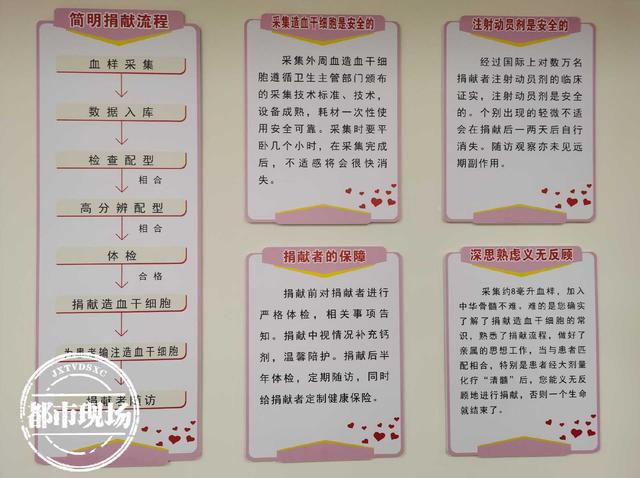 简明捐献流程
血样采集
数据入库
检查配型
相合
高分辨配型
相合
体检
合格
捐献造血干细胞
为患者输注造血干细胞
捐献者随访
采集造血干细胞是安全的
采集外周血造血干细
胞遵循卫生主管部门颁布
的采集技术标准、技术，
设备成熟，耗材一次性使
用安全可靠。采集时要平
卧几个小时，在采集完成
后，不适感将会很快消
失。
注射动员剂是安全的
经过国际上对数万名
捐献者注射动员剂的临床
证实，注射动员剂是安全
的。个别出现的轻微不适
会在捐献后一两天后自行
消失。随访观察亦未见远
期副作用。
捐献者的保障
捐献前对捐献者进行
严格体检，相关事项告
知。捐献中视情况补充钙
剂，温馨陪护。捐献后半
年体检，定期随访，同时
给捐献者定制健康保险。
深思熟虑义无反顾
采集约8毫升血样，加入
中华骨髓不难。难的是您确实
了解了捐献造血干细胞的常
识，熟悉了捐献流程，做好了
亲属的思想工作，当与患者匹
配相合，特别是患者经大剂量
化疗“清髓”后，您能义无反
顾地进行捐献，否则一个生命
就结束了。
JXTVDSXC
都市现场